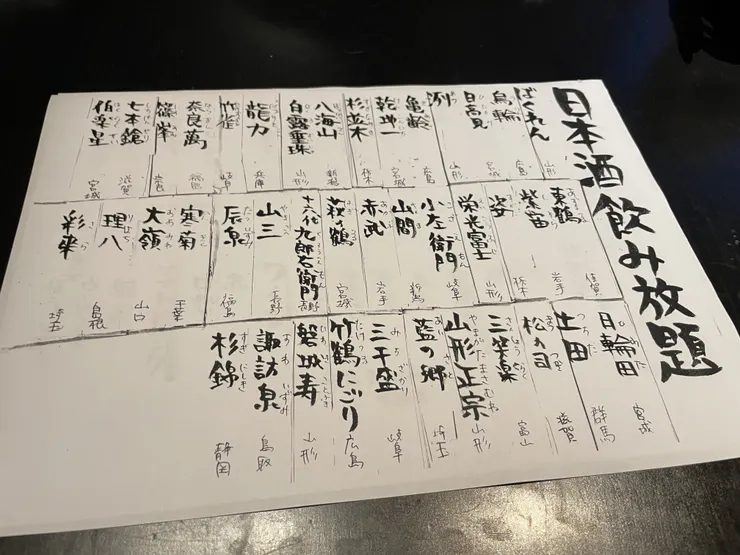 日本酒飲み放題
ばくれん 山形
鳥輪 広島
日高見 宮城
洌 山形
亀齢 広島
乾坤一 宮城
杉並木 栃木
八海山 新潟
白露垂珠 山形
龍力 兵庫
竹雀 岐阜
奈良萬 福島
篠峯 奈良
七本鎗 滋賀
伯楽星 宮城
東鶴 佐賀
紫宙 岩手
姿 栃木
栄光冨士 山形
小左衛門 岐阜
山間 新潟
赤武 岩手
萩の鶴 宮城
十六代九郎右衛門 長野
山三 長野
辰泉 福島
寒菊 千葉
大嶺 山口
理八 島根
彩來 埼玉
日輪田 宮城
土田 群馬
松の司 滋賀
三笑楽 富山
山形正宗 山形
藍の郷 埼玉
三千盛 岐阜
竹鶴にごり 広島
磐城寿 山形
諏訪泉 鳥取
杉錦 静岡